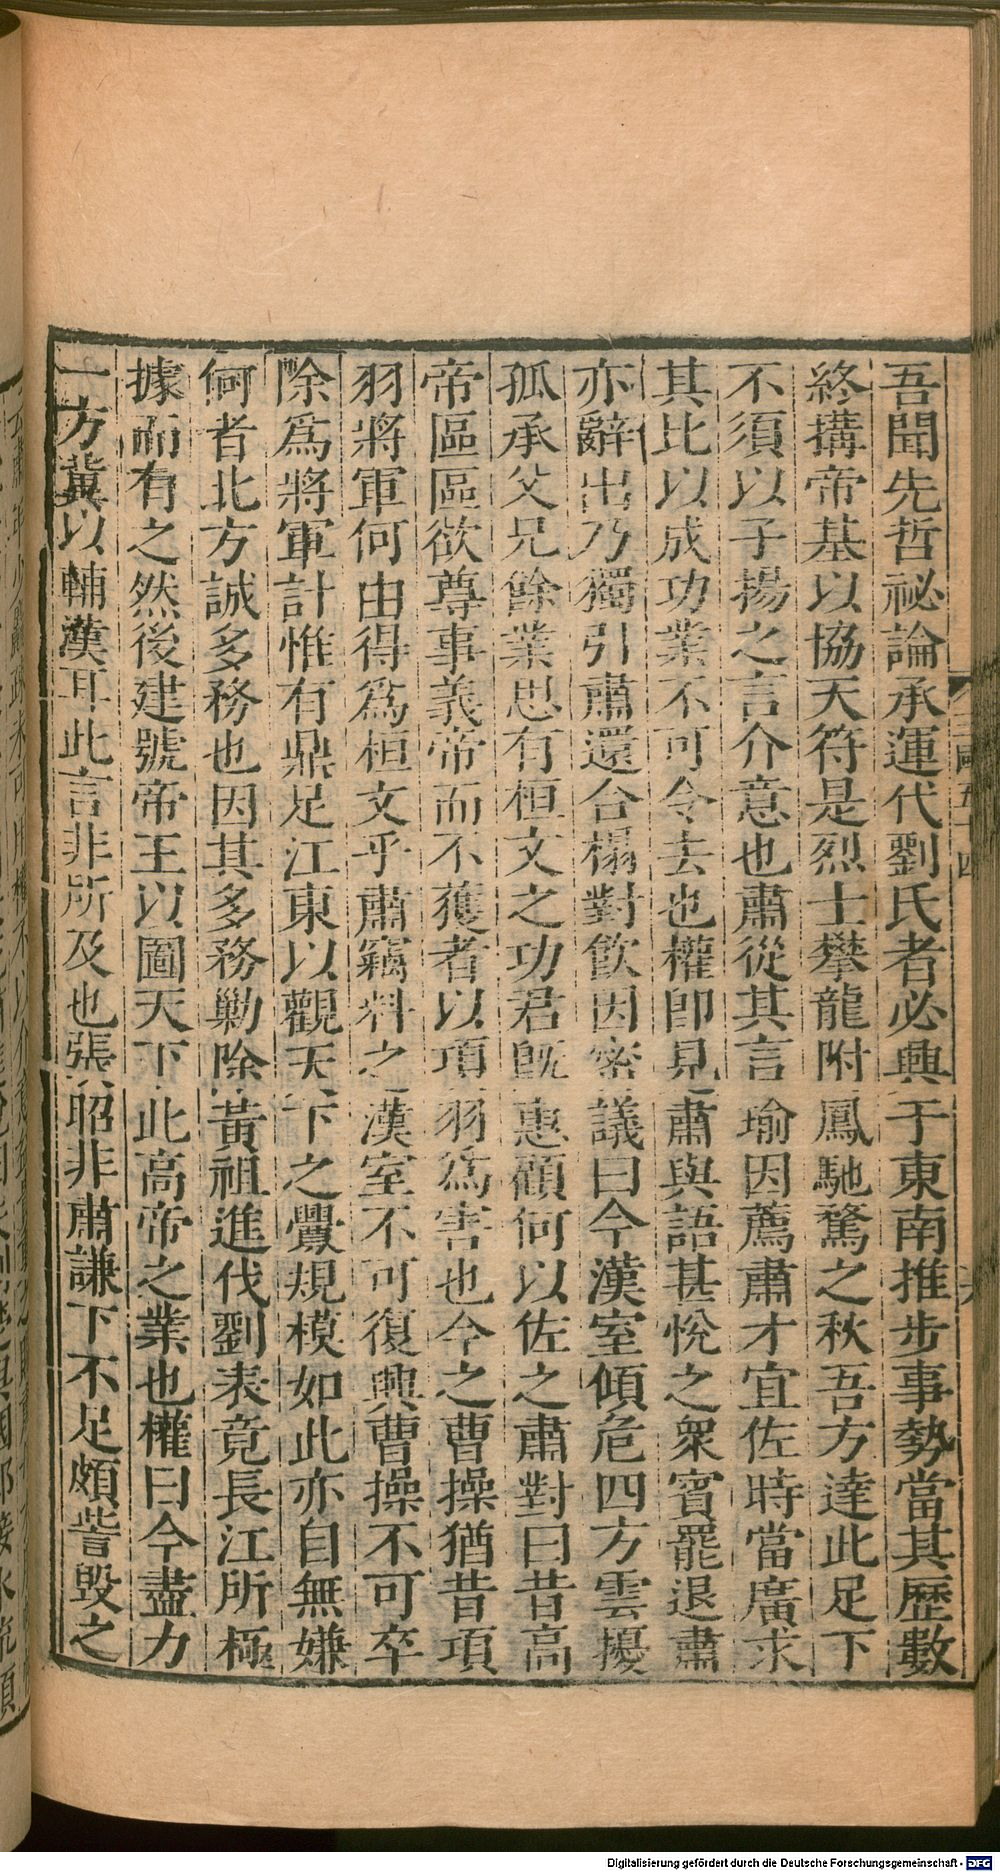 吾聞先哲祕論承運代劉氏者必興于東南推步事勢當其歷數
終搆帝基以協天符是烈士攀龍附鳳馳騖之秋吾方達此足下
不須以子揚之言介意也肅從其言瑜因薦肅才宜佐時當廣求
其比以成功業不可令去也權即見肅與語甚悅之衆賓罷退肅
亦辭出乃獨引肅還合榻對飲因密議曰今漢室傾危四方雲擾
孤承父兄餘業思有桓文之功君旣惠顧何以佐之肅對曰昔高
帝區區欲尊事義帝而不獲者以項羽爲害也今之曹操猶昔項
羽將軍何由得爲桓文乎肅竊料之漢室不可復興曹操不可卒
除爲將軍計惟有鼎足江東以觀天下之釁規模如此亦自無嫌
何者北方誠多務也因其多務勦除黃祖進伐劉表竟長江所極
據而有之然後建號帝王以圖天下此高帝之業也權曰今盡力
一方冀以輔漢耳此言非所及也張昭非肅謙下不足頗訾毀之
Digitalisierung gefördert durch die Deutsche Forschungsgemeinschaft - DFG